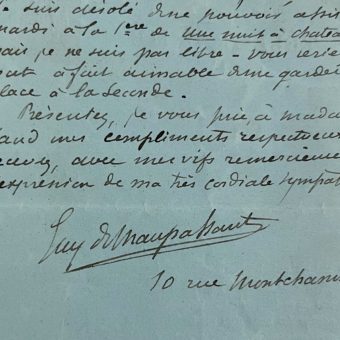 suis désolé de ne pouvoir assis
mardi à la 1ère de Une nuit à château
mais je ne suis pas libre - vous serie
out à fait aimable de me garder
lace à la seconde.
Présentez, je vous prie, à mada
aud mes compliments respectueux
recevez, avec mes vifs remerciemen
expression de ma très cordiale sympat
Guy de Maupassant
10 rue Montchanin